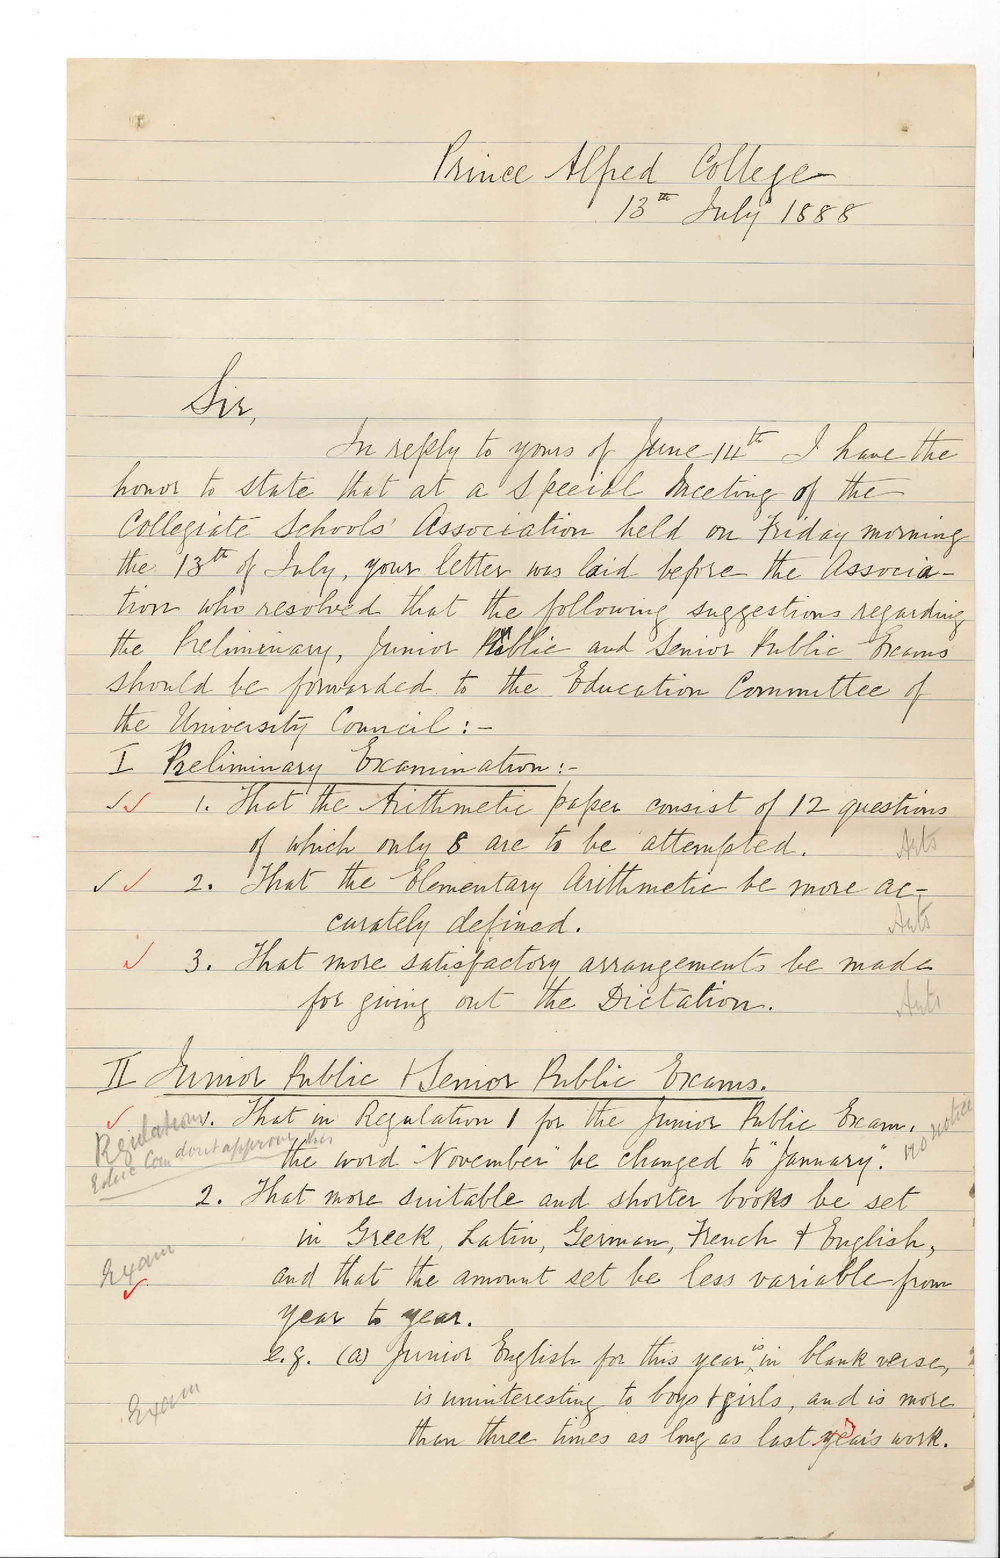 Prince Alfred College
13th July 1888
Sir,
In reply to yours of June 14th I have the
honor to state that at a Special Meeting of the
Collegiate Schools' Association held on Friday morning
the 13th of July, your letter was laid before the Associa-
tion who resolved that the following suggestions regarding
the Preliminary, Junior Public and Senior Public Exams
should be forwarded to the Education Committee of
the University Council :-
I Preliminary Examination :-
✓✓ 1. That the Arithmetic paper consist of 12 questions
of which only 8 are to be attempted.
Arts
✓ ✓ 2. That the Elementary Arithmetic be more ac-
curately defined.
Arts
✓ 3. That more satisfactory arrangements be made
for giving out the Dictation.
Arts
II Junior Public & Senior Public Exams.
✓ 1. That in Regulation 1 for the Junior Public Exam.
Regulations
no notice
the word "November" be changed to "January".
Educ Com dont approve this
2. That more suitable and shorter books be set
in Greek, Latin, German, French & English,
Exam
✓ and that the amount set be less variable from
year to year.
e.g. (a) Junior English for this year, is in blank verse,
is uninteresting to boys & girls, and is more
Exam
than three times as long as last year's work.